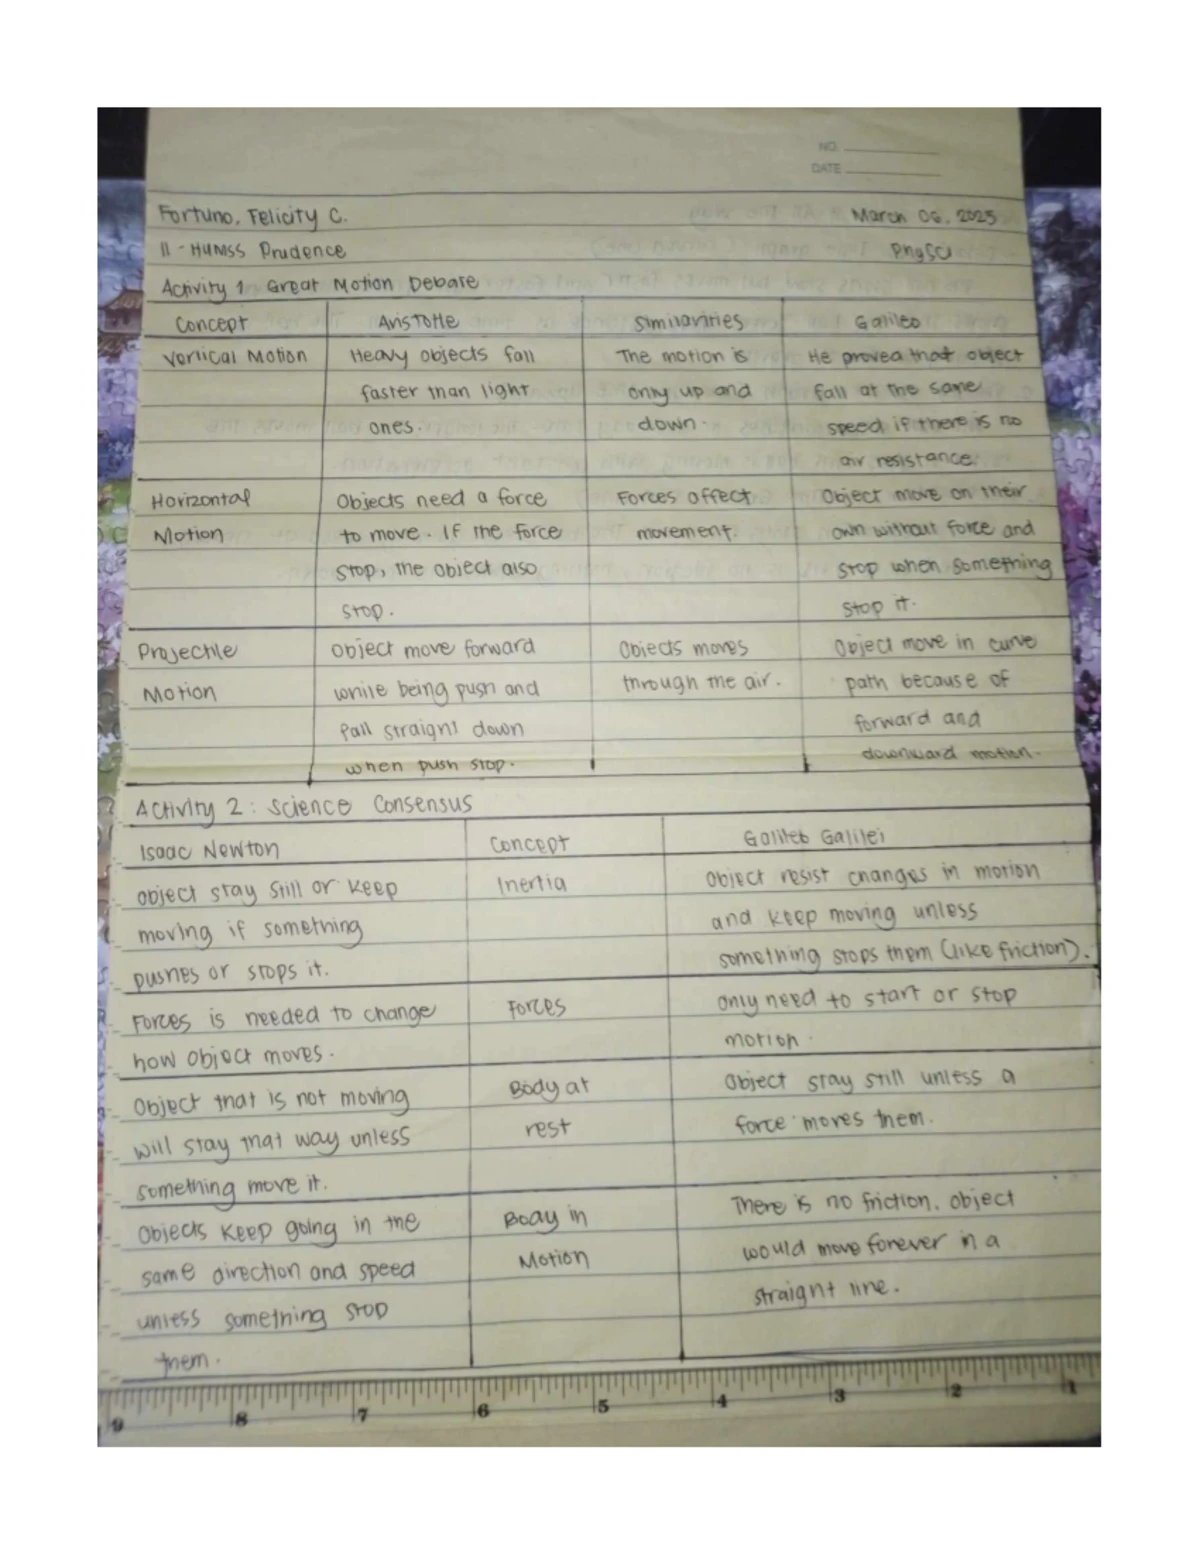 NO.
DATE
Fortuno, Felicity C. March 06, 2025
11 - HUMSS Prudence PhySci
Activity 1 Great Motion Debate
Concept Aristotle Similarities Galileo
Vertical Motion Heavy objects fall The motion is He proved that object
faster than light only up and fall at the same
ones. down. speed if there is no
air resistance.
Horizontal Objects need a force Forces affect Object move on their
Motion to move. If the force movement. own without force and
stop, the object also stop when something
stop. stop it.
Projectile Object move forward Objects moves Object move in curve
Motion while being push and through the air. path because of
fall straight down forward and
when push stop. downward motion.
Activity 2: Science Consensus
Isaac Newton Concept Galileo Galilei
object stay still or keep Inertia Object resist changes in motion
moving if something and keep moving unless
pushes or stops it. something stops them (like friction).
Forces is needed to change Forces only need to start or stop
how object moves. motion.
Object that is not moving Body at Object stay still unless a
will stay that way unless rest force moves them.
something move it.
Objects keep going in the Body in There is no friction, object
same direction and speed Motion would move forever in a
unless something stop straight line.
them.
9 8 7 6 5 4 3 2 1